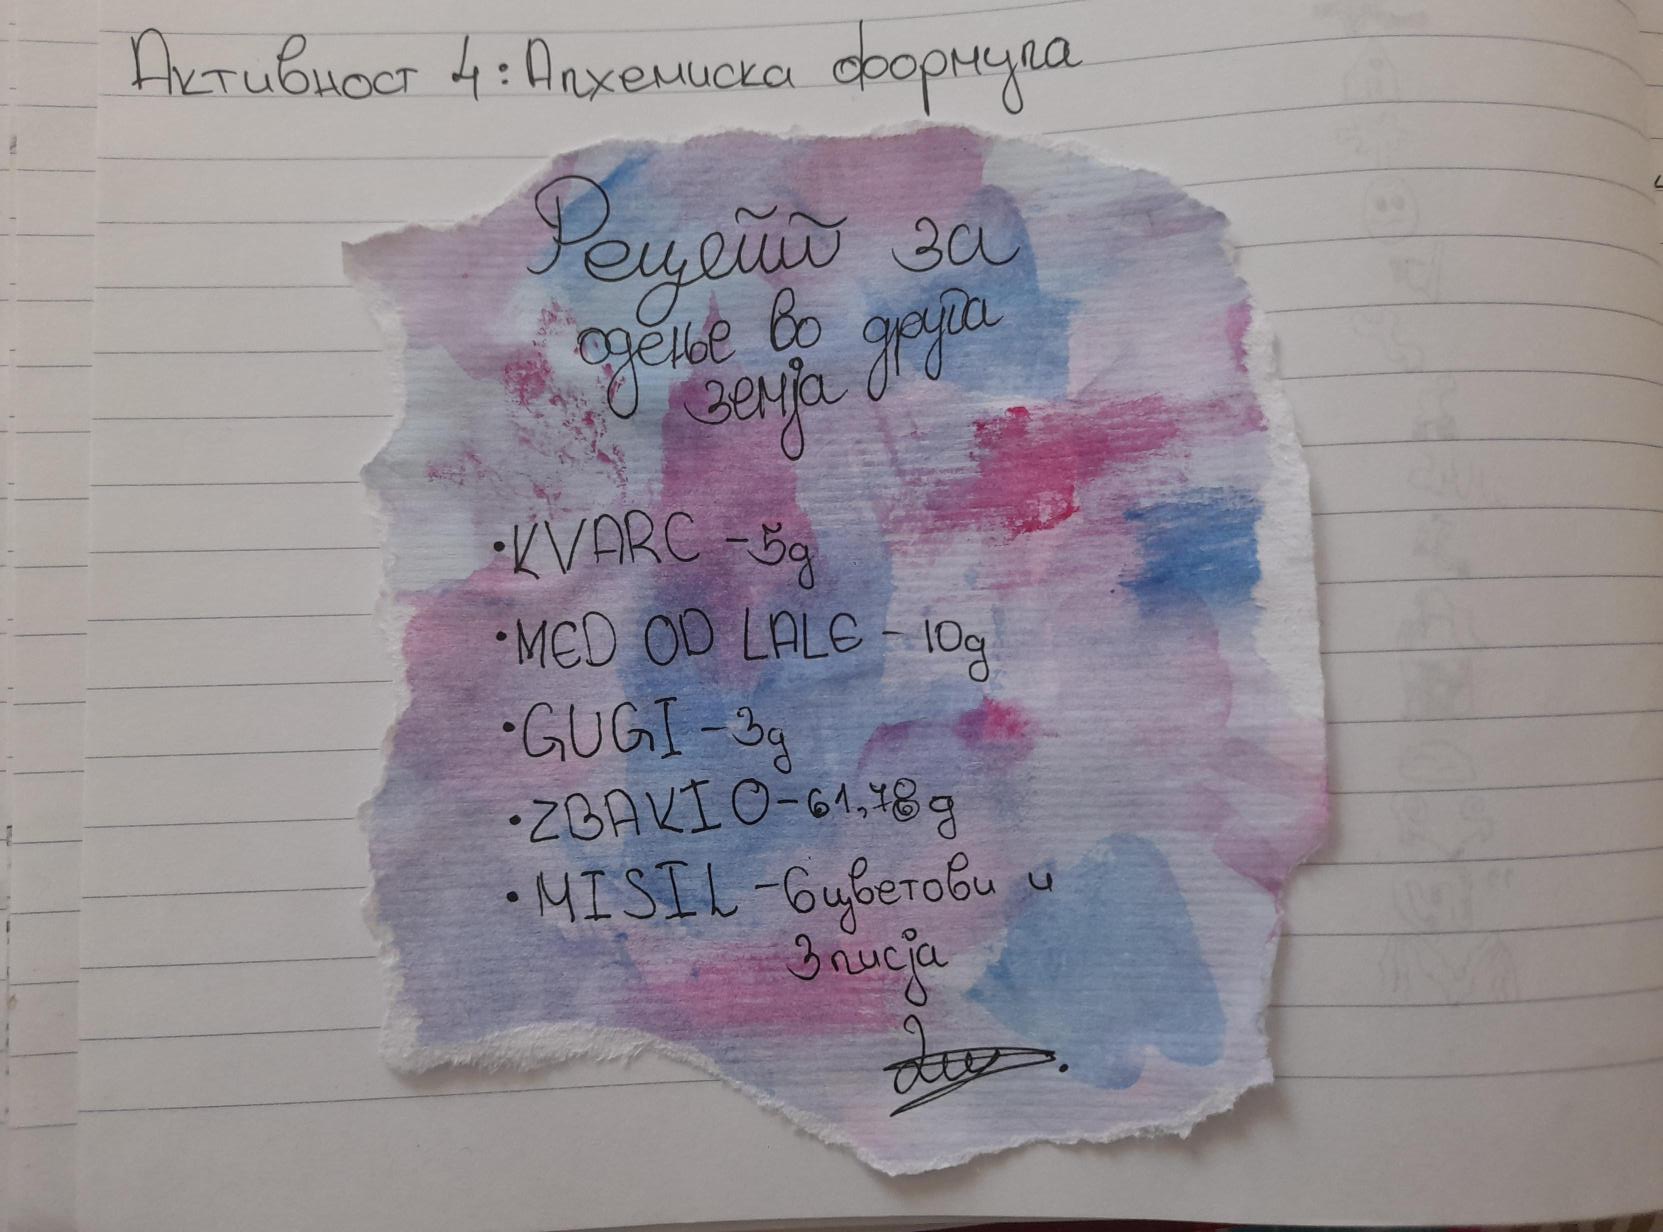 Активност 4: Алхемиска формула
Рецепт за
одење во друга
земја
•KVARC -5g
•MED OD LALE - 10g
•GUGI -3g
•ZBAKIO-61,78g
•MISIL -6цветови и
3лисја